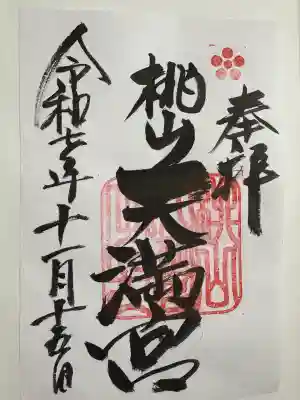 奉拝
桃山天満宮
令和七年十一月十五日